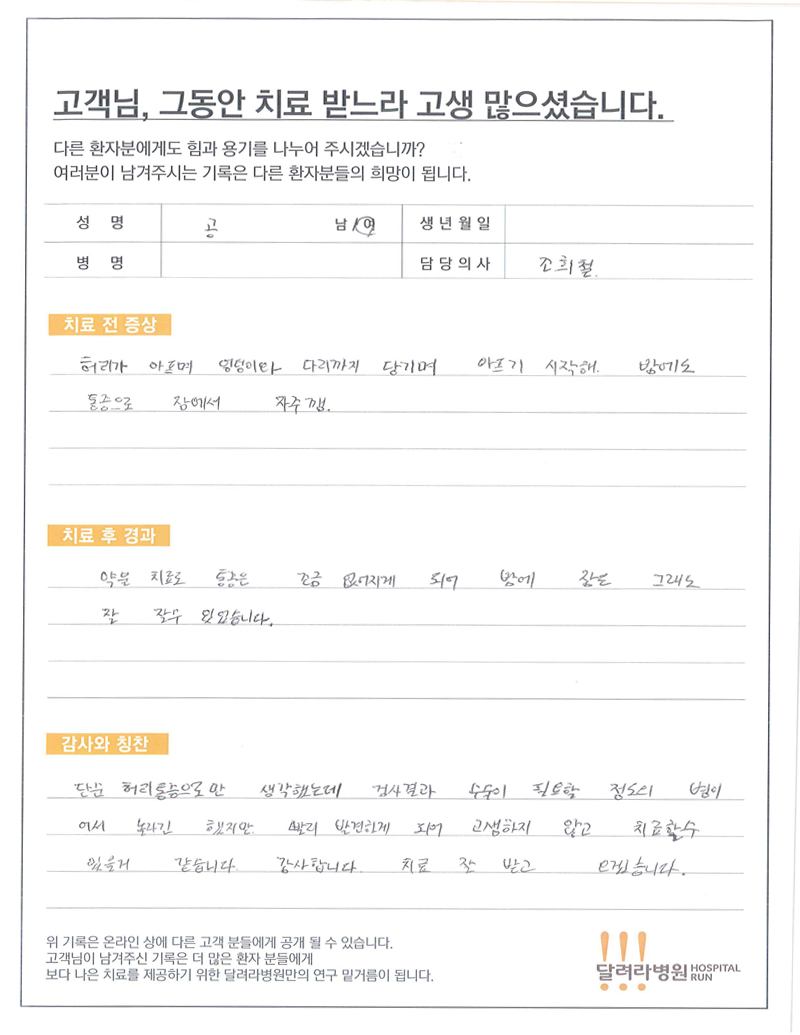 고객님, 그동안 치료 받느라 고생 많으셨습니다.
다른 환자분에게도 힘과 용기를 나누어 주시겠습니까?
여러분이 남겨주시는 기록은 다른 환자분들의 희망이 됩니다.
성 명 공 남/여 생년월일
병 명 담당의사 조희철
치료 전 증상
허리가 아프며 엉덩이와 다리까지 당기며 아프기 시작해. 밤에도
통증으로 잠에서 자주 깸.
치료 후 경과
약물 치료로 통증은 조금 없어지게 되어 밤에 잠은 그래도
잘 잘수 있었습니다.
감사와 칭찬
단순 허리통증으로만 생각했는데 검사결과 수술이 필요할 정도의 병이
여서 놀라긴 했지만. 빨리 발견하게 되어 고생하지 않고 치료할수
있을거 같습니다. 감사합니다. 치료 잘 받고 가겠습니다.
위 기록은 온라인 상에 다른 고객 분들에게 공개 될 수 있습니다.
고객님이 남겨주신 기록은 더 많은 환자 분들에게
보다 나은 치료를 제공하기 위한 달려라병원만의 연구 밑거름이 됩니다.
!!!
달려라병원 HOSPITAL RUN